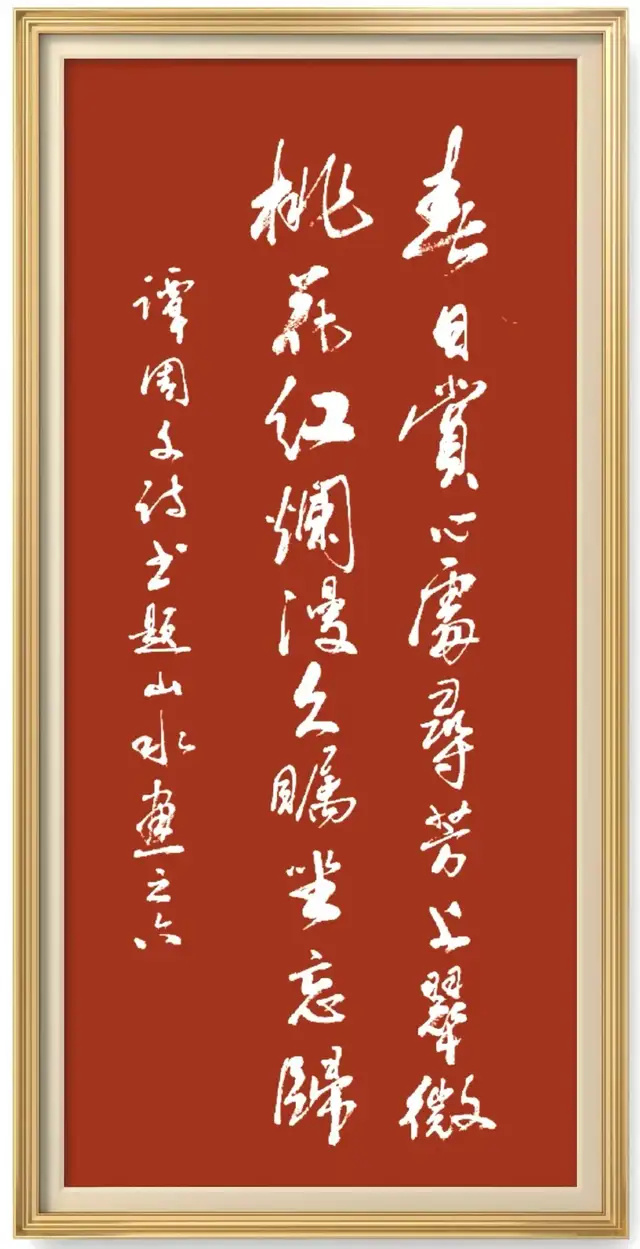 春日賞心處尋芳上翠微
桃花红爛漫久瞩坐忘歸
譚周文诗书题山水畫之六